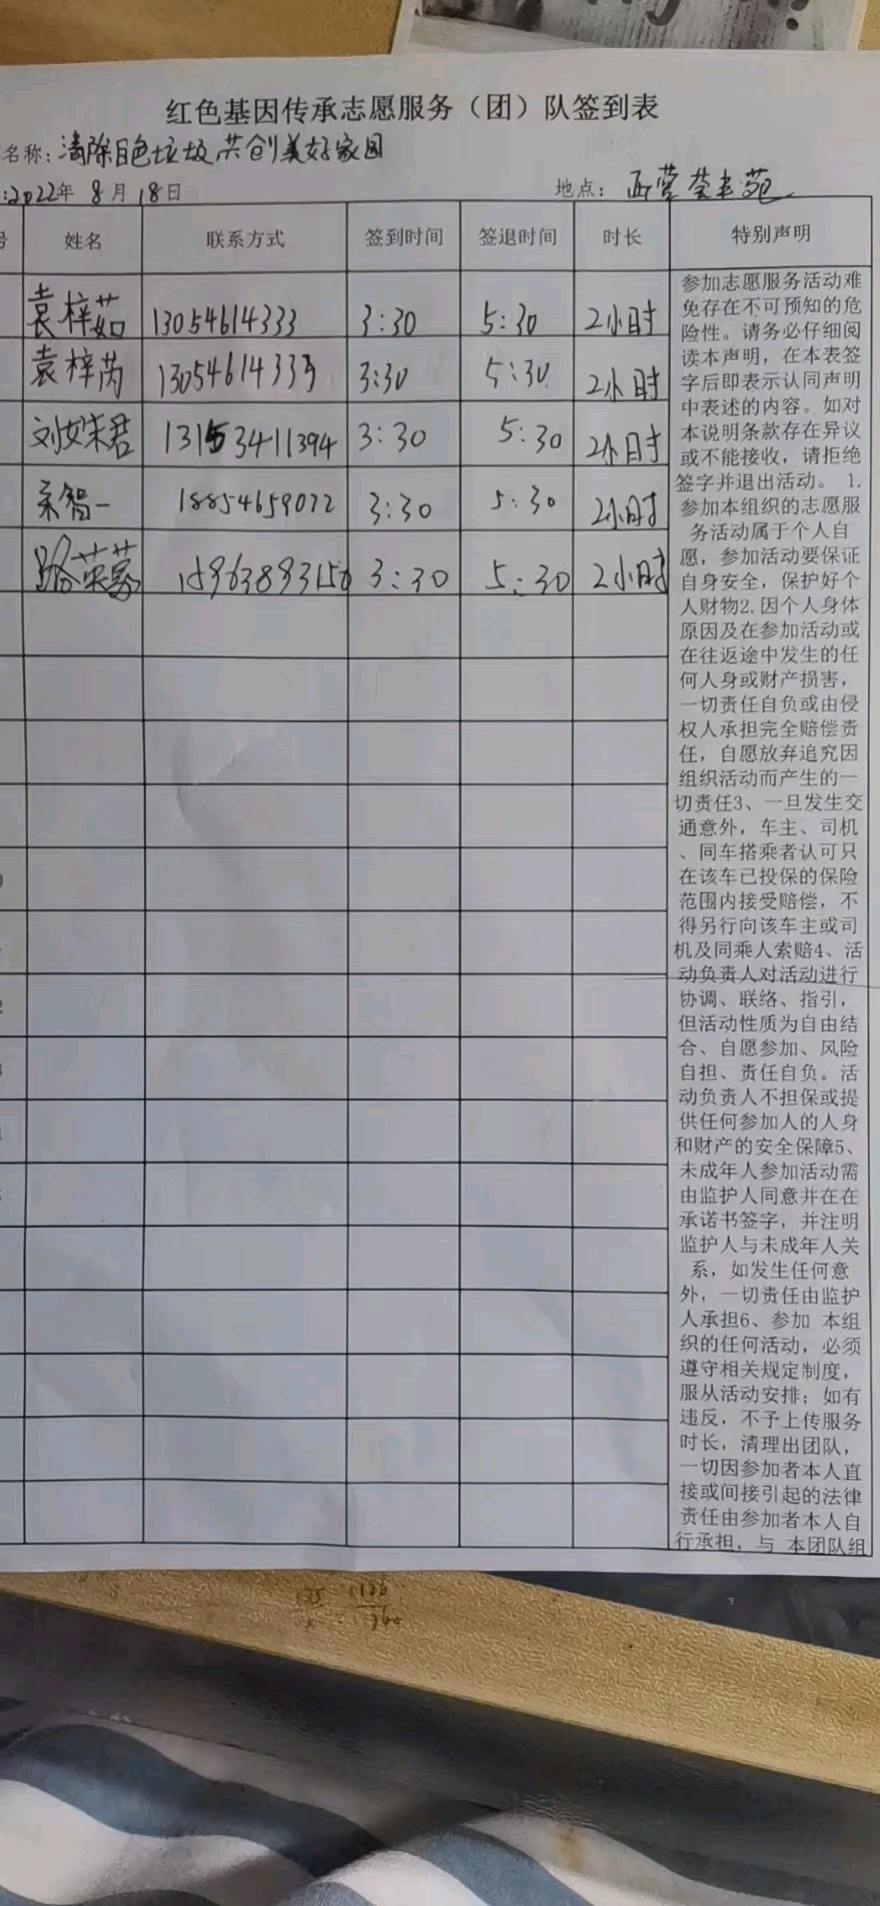 红色基因传承志愿服务（团）队签到表
名称：清除白色垃圾共创美好家园
：2022年 8月 18日 地点：西营
姓名 联系方式 签到时间 签退时间 时长 特别声明
袁梓茹 13054614333 3:30 5:30 2小时
袁梓芮 13054614333 3:30 5:30 2小时
刘姝君 13153411394 3:30 5:30 2小时
智一 18854659072 3:30 5:30 2小时
路英蒙 15963893150 3:30 5:30 2小时
参加志愿服务活动难
免存在不可预知的危
险性。请务必仔细阅
读本声明，在本表签
字后即表示认同声明
中表述的内容。如对
本说明条款存在异议
或不能接收，请拒绝
签字并退出活动。 1.
参加本组织的志愿服
务活动属于个人自
愿，参加活动要保证
自身安全，保护好个
人财物2.因个人身体
原因及在参加活动或
在往返途中发生的任
何人身或财产损害，
一切责任自负或由侵
权人承担完全赔偿责
任，自愿放弃追究因
组织活动而产生的一
切责任3、一旦发生交
通意外，车主、司机
、同车搭乘者认可只
在该车已投保的保险
范围内接受赔偿，不
得另行向该车主或司
机及同乘人索赔4、活
动负责人对活动进行
协调、联络、指引，
但活动性质为自由结
合、自愿参加、风险
自担、责任自负。活
动负责人不担保或提
供任何参加人的人身
和财产的安全保障5、
未成年人参加活动需
由监护人同意并在在
承诺书签字，并注明
监护人与未成年人关
系，如发生任何意
外，一切责任由监护
人承担6、参加 本组
织的任何活动，必须
遵守相关规定制度，
服从活动安排；如有
违反，不予上传服务
时长，清理出团队，
一切因参加者本人直
接或间接引起的法律
责任由参加者本人自
行承担，与 本团队组